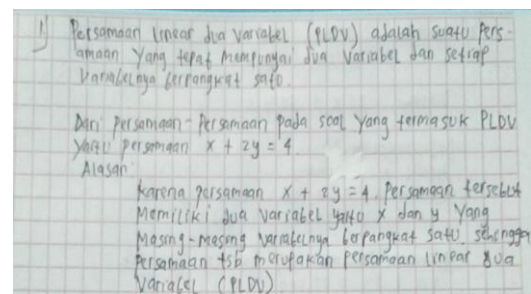 1) Persamaan linear dua variabel (PLDV) adalah suatu pers-
amaan yang tepat mempunyai dua variabel dan setiap
variabelnya berpangkat satu.
Dari persamaan-persamaan pada soal yang termasuk PLDV
yaitu persamaan x + 2y = 4.
Alasan
Karena persamaan x + 2y = 4. Persamaan tersebut
Memiliki dua variabel yaito x dan y yang
Masing-masing variabelnya berpangkat satu, sehingga
Persamaan tsb merupakan persamaan linear dua
Variabel (PLDV).